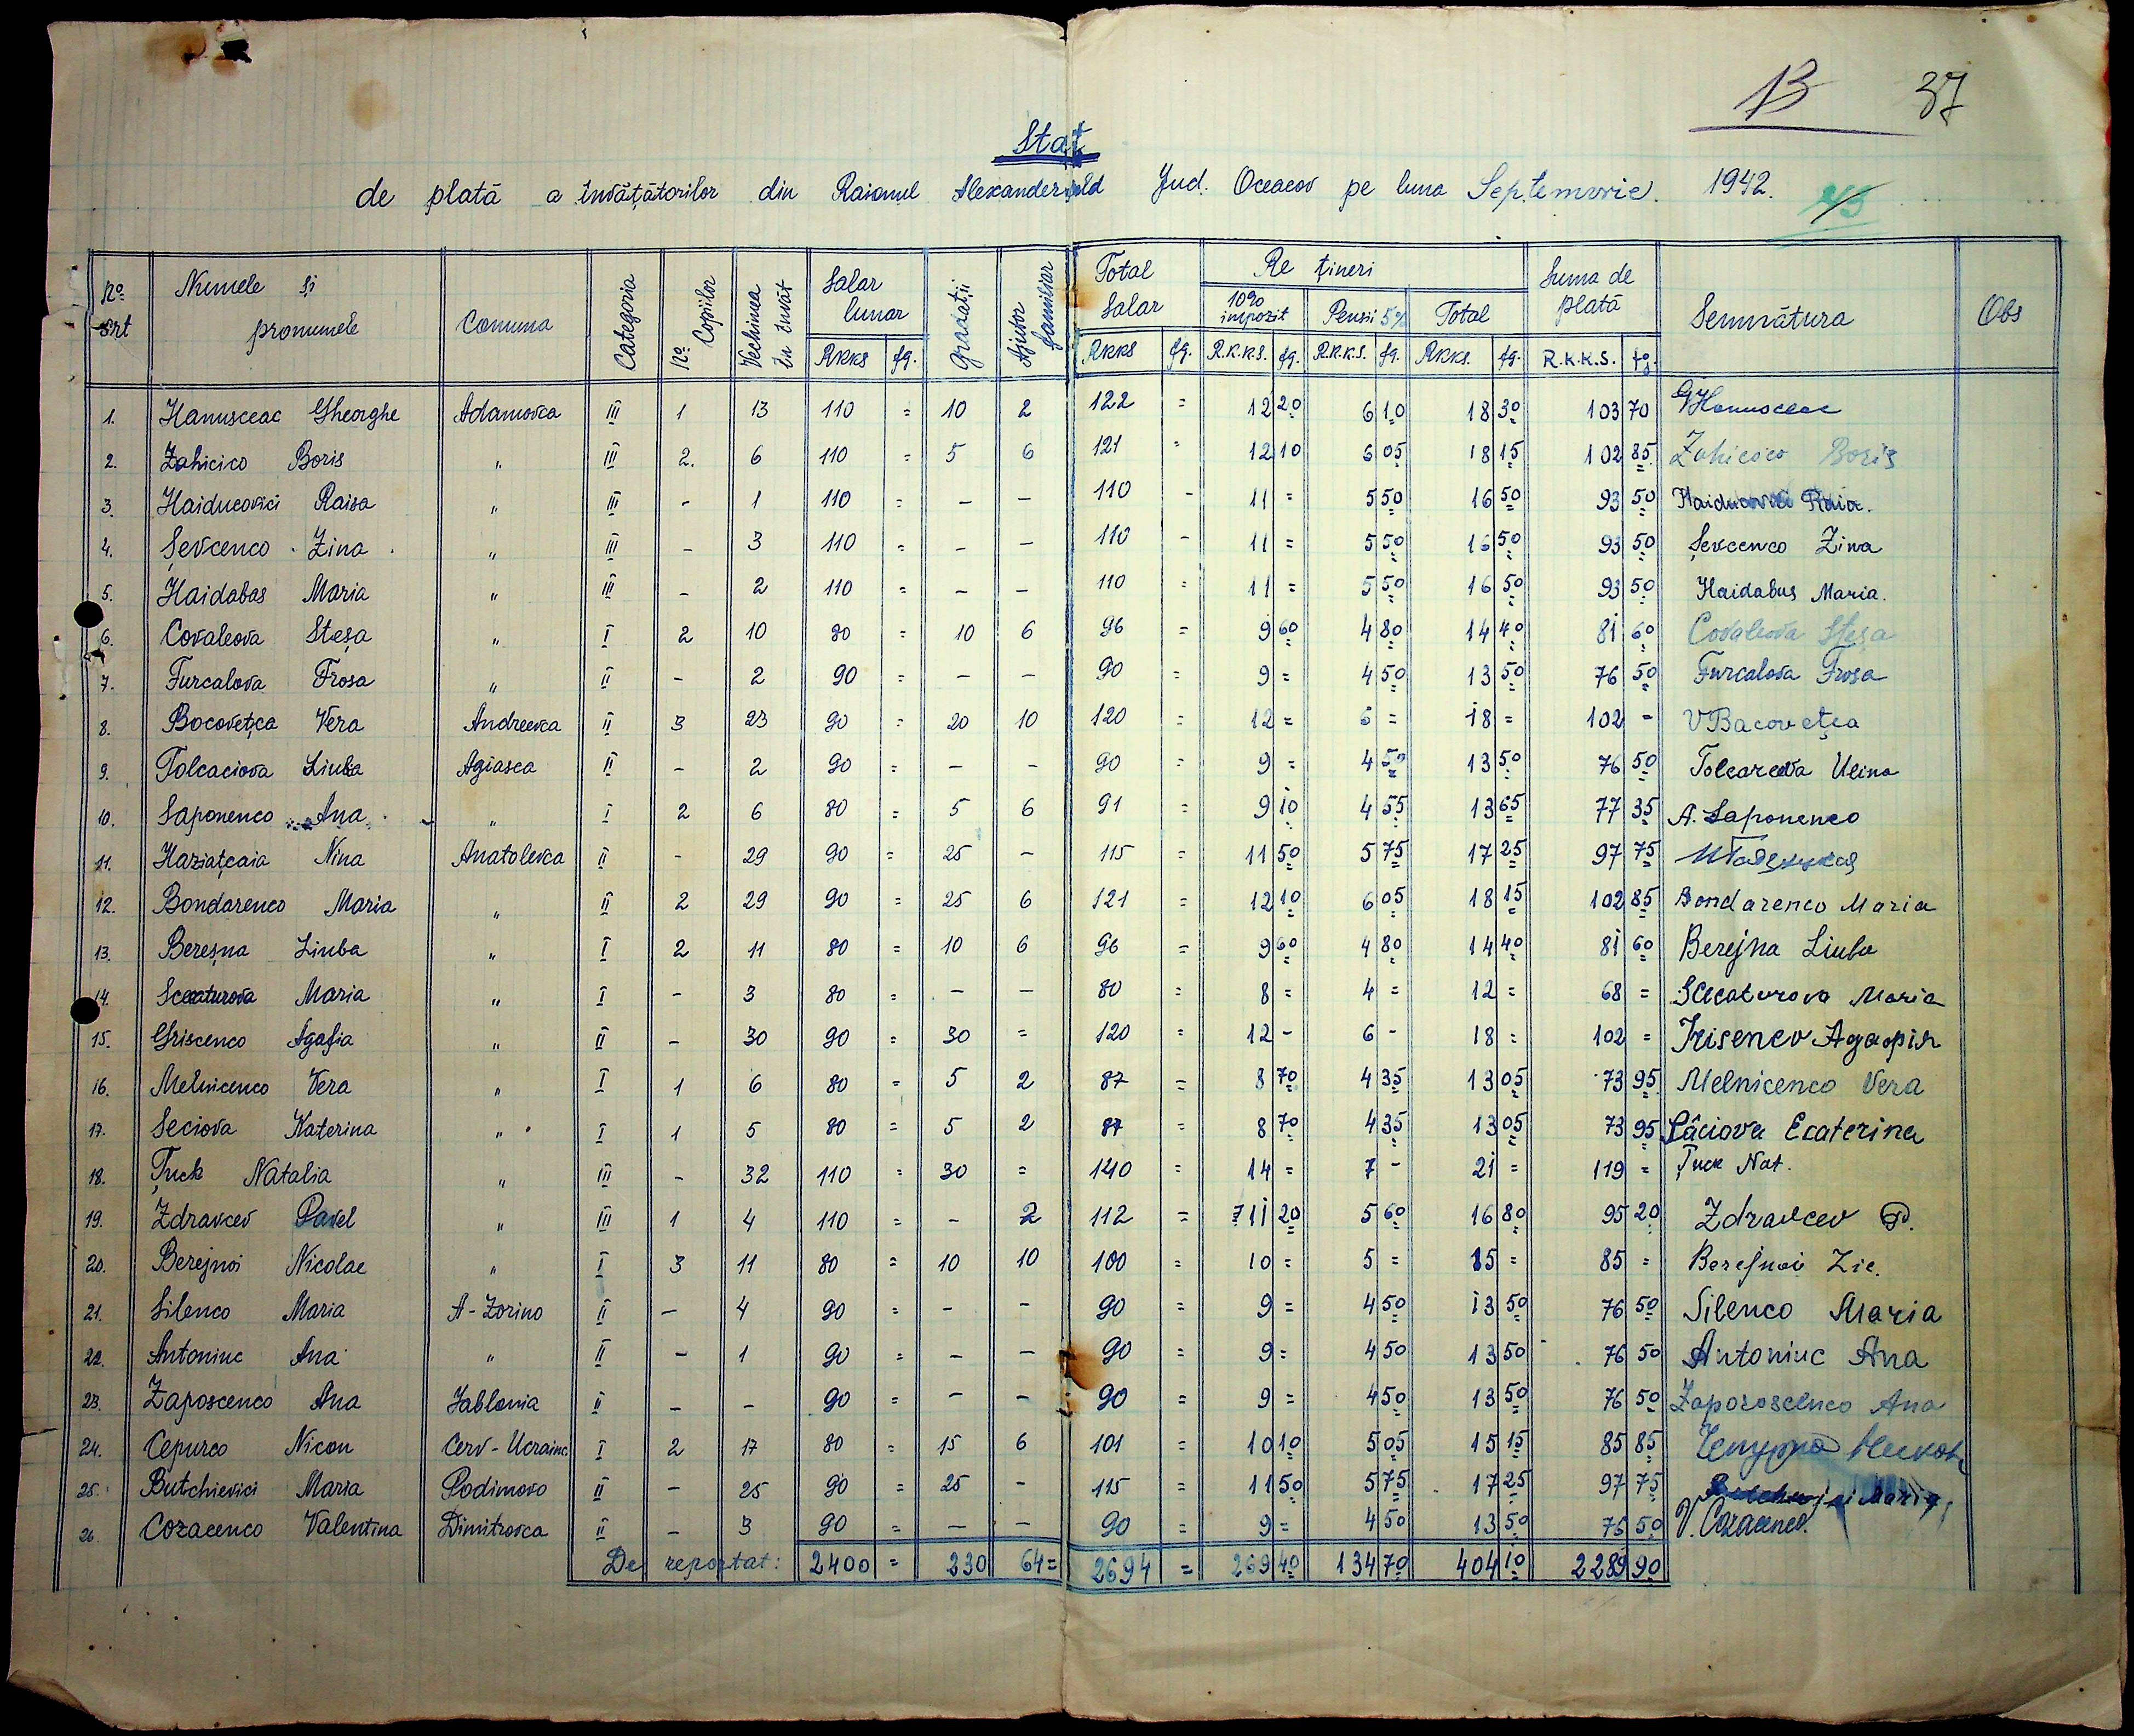 13 37
Stat
de plată a învățătorilor din Raionul Alexanderfeld Jud. Oceacov pe luna Septemvrie. 1942.
No Crt | Numele și pronumele | Comuna | Categoria | No Copiilor | Vechimea în învăț | Salar lunar RKKS fg. | Gradații | Ajutor familiar | Total Salar RKKS fg. | Re țineri 10% impozit R.K.K.S. fg. | Pensii 5% R.K.K.S. fg. | Total RKKS. fg. | Suma de plată R.K.K.S. fg. | Semnătura | Obs
1. Hanusceac Gheorghe Adamovca III 1 13 110 = 10 2 122 = 12 20 6 10 18 30 103 70 GHanusceac
2. Zahicico Boris " III 2. 6 110 = 5 6 121 " 12 10 6 05 18 15 102 85 Zahicico Boris
3. Haiducovici Raisa " III - 1 110 = - - 110 - 11 = 5 50 16 50 93 50 Haiducovici Raia.
4. Șevcenco Zina " III - 3 110 = - - 110 - 11 = 5 50 16 50 93 50 Șevcenco Zina
5. Haidabas Maria " III - 2 110 = - - 110 = 11 = 5 50 16 50 93 50 Haidabus Maria.
6. Covaleova Steșa " I 2 10 80 = 10 6 96 = 9 60 4 80 14 40 81 60 Covaleova Steșa
7. Furcalova Frosa " II - 2 90 = - - 90 = 9 = 4 50 13 50 76 50 Furcalova Frosa
8. Bocovețca Vera Andreevca II 3 23 90 = 20 10 120 = 12 = 6 = 18 = 102 - VBacovețca
9. Tolcaciova Liuba Agiasca II - 2 90 = - - 90 = 9 = 4 50 13 50 76 50
10. Saponenco Ana " I 2 6 80 = 5 6 91 = 9 10 4 55 13 65 77 35 A. Saponenco
11. Haziațcaia Nina Anatolevca II - 29 90 = 25 - 115 = 11 50 5 75 17 25 97 75
12. Bondarenco Maria " II 2 29 90 = 25 6 121 = 12 10 6 05 18 15 102 85 Bondarenco Maria
13. Bereșna Liuba " I 2 11 80 = 10 6 96 = 9 60 4 80 14 40 81 60 Berejna Liuba
14. Maria " I - 3 80 = - - 80 = 8 = 4 = 12 = 68 = Maria
15. Griscenco Agafia " II - 30 90 = 30 = 120 = 12 - 6 - 18 = 102 = Agapia
16. Melnicenco Vera " I 1 6 80 = 5 2 87 = 8 70 4 35 13 05 73 95 Melnicenco Vera
17. Seciova Katerina " I 1 5 80 = 5 2 87 = 8 70 4 35 13 05 73 95 Sâciova Ecaterina
18. Țuck Natalia " III - 32 110 = 30 = 140 = 14 = 7 - 21 = 119 = Țuck Nat.
19. Zdravcev Pavel " III 1 4 110 = - 2 112 = 11 20 5 60 16 80 95 20 Zdravcev P.
20. Berejnoi Nicolae " I 3 11 80 = 10 10 100 = 10 = 5 = 15 = 85 = Berejnoi
21. Silenco Maria A-Zorino II - 4 90 = - - 90 = 9 = 4 50 13 50 76 50 Silenco Maria
22. Antoniuc Ana " II - 1 90 = - - 90 = 9 = 4 50 13 50 76 50 Antoniuc Ana
23. Zaposcenco Ana Jablonia II - - 90 = - - 90 = 9 = 4 50 13 50 76 50 Zaporoscenco Ana
24. Cepurco Nicon Cerv-Ucrainc. I 2 17 80 = 15 6 101 = 10 10 5 05 15 15 85 85
25. Butchievici Maria Podimovo II - 25 90 = 25 - 115 = 11 50 5 75 17 25 97 75 Maria
26 Cozacenco Valentina Dimitrovca II - 3 90 = - - 90 = 9 = 4 50 13 50 76 50 V. Cozacenco.
De reportat: 2400 = 230 64 = 2694 = 269 40 134 70 404 10 2289 90